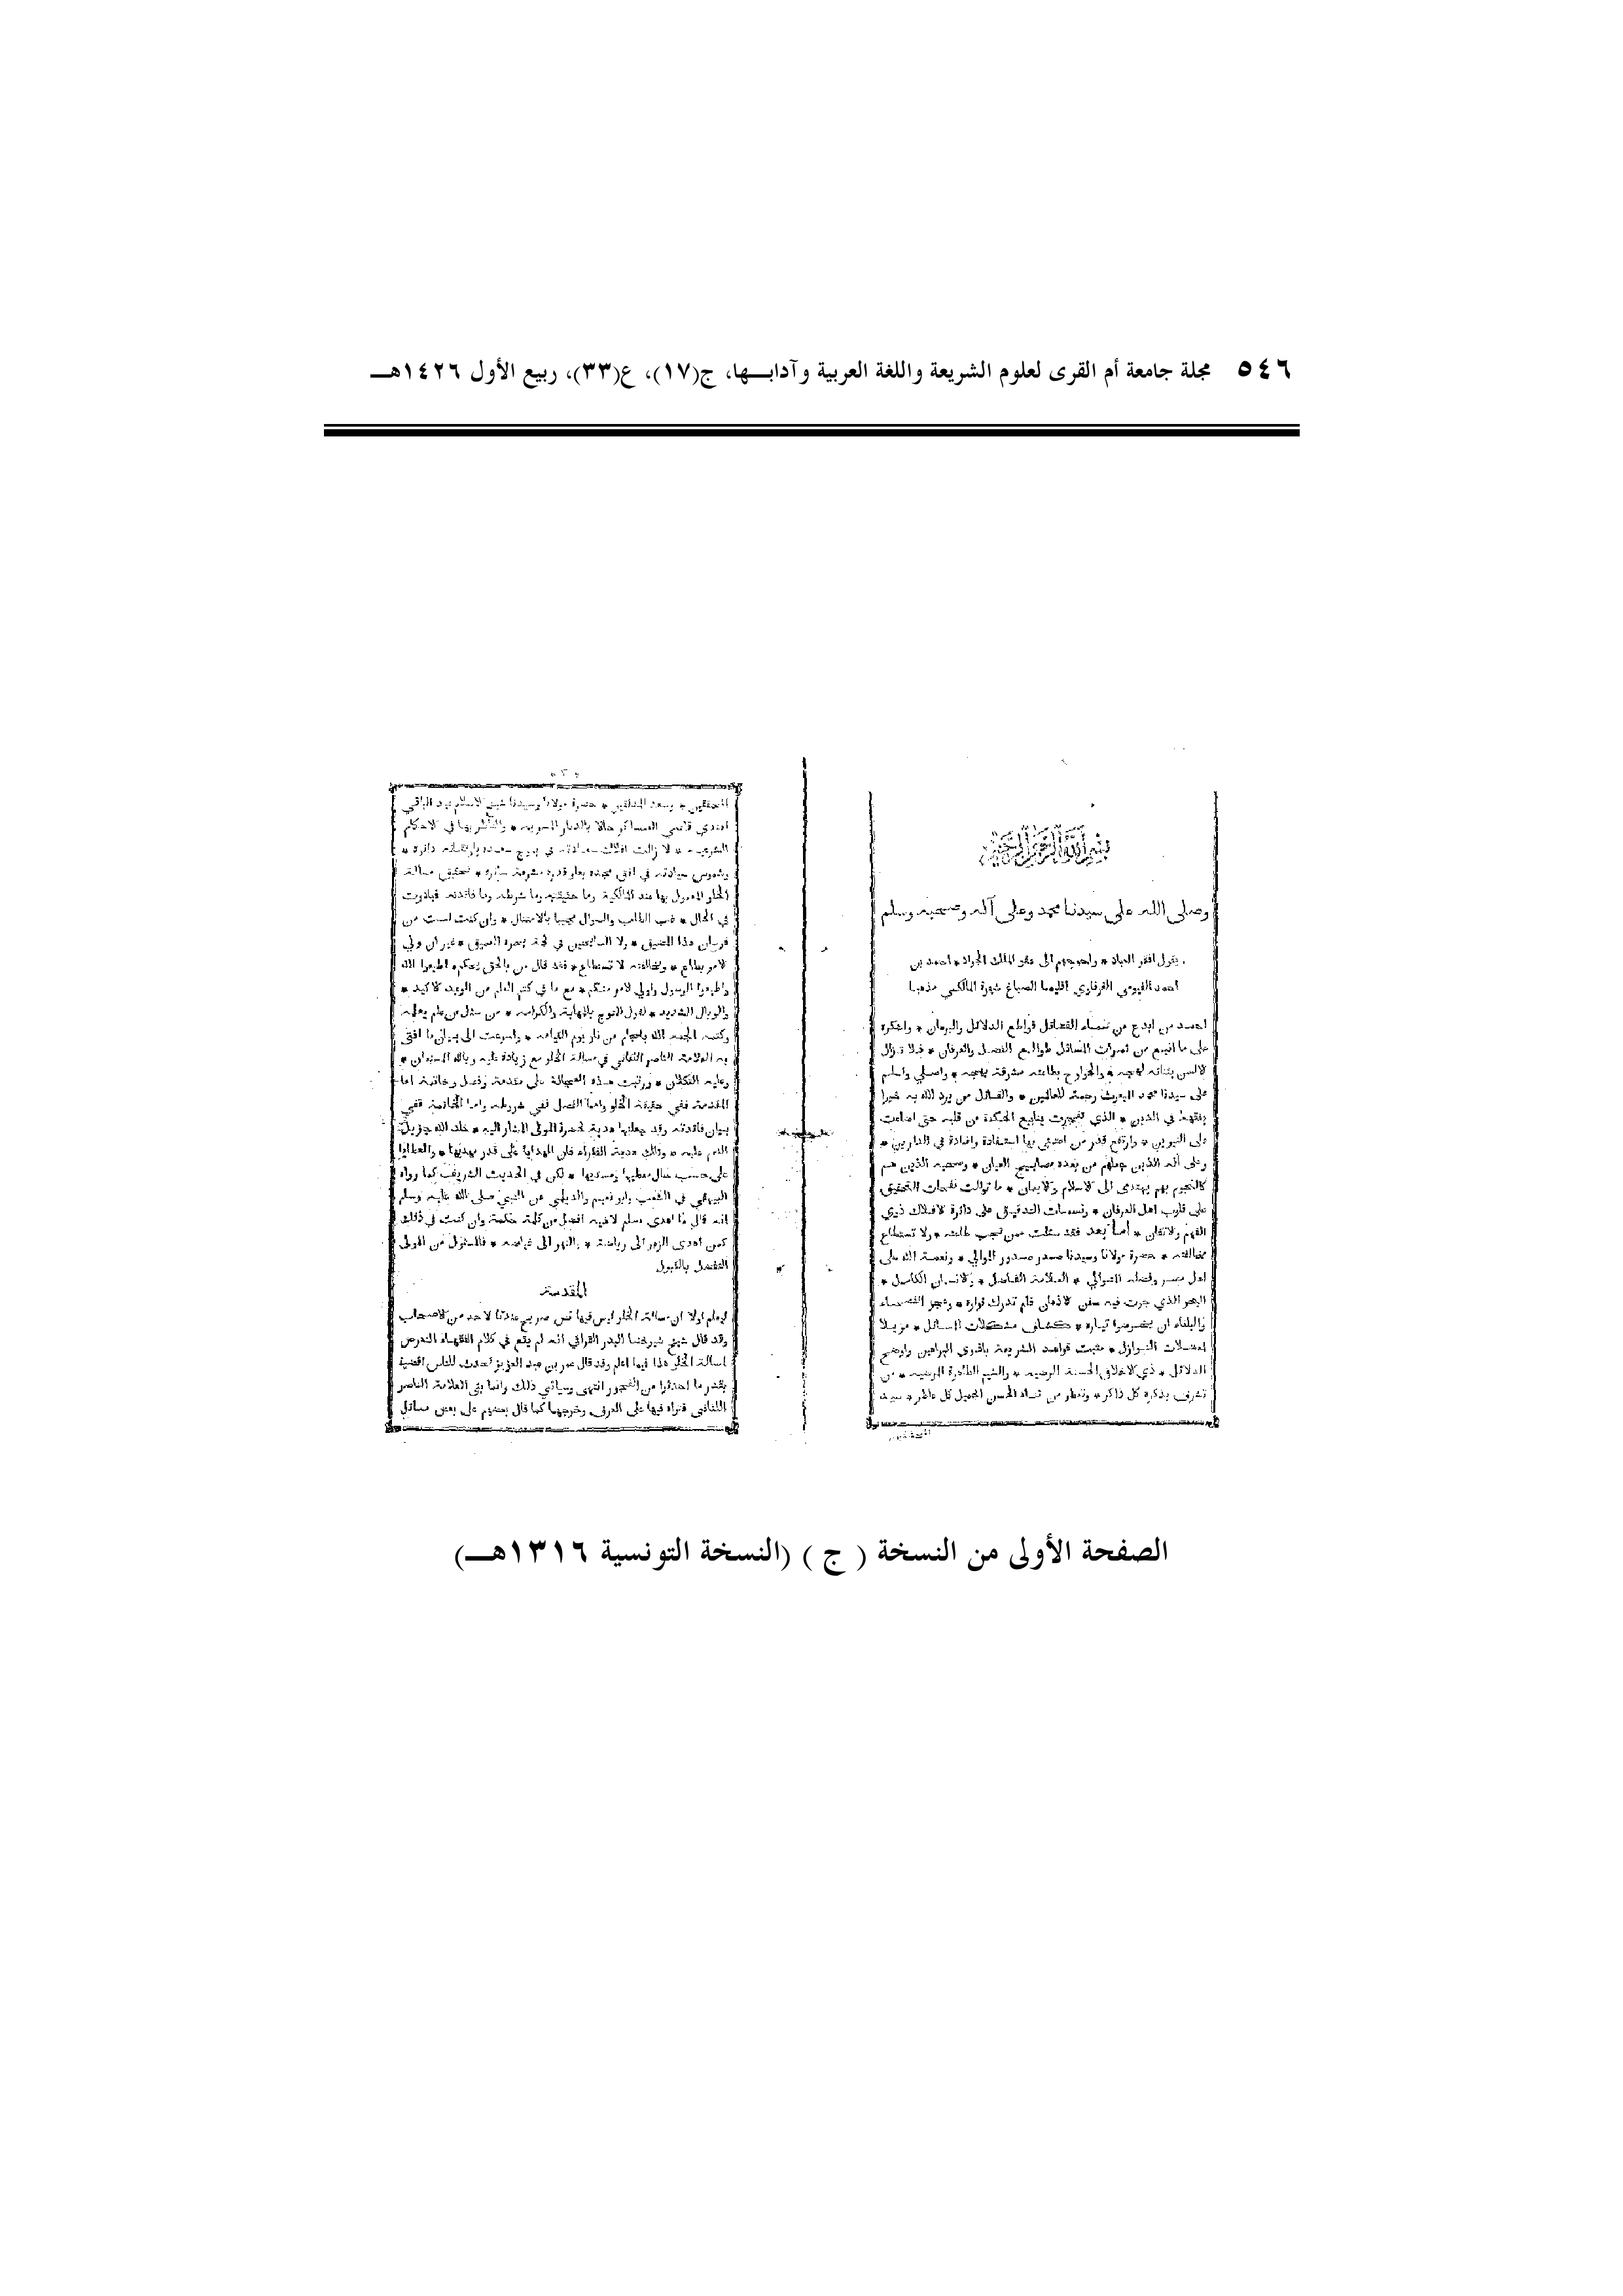 ٥٤٦ مجلة جامعة أم القرى لعلوم الشريعة واللغة العربية وآدابـــها، ج(١٧)، ع(٣٣)، ربيع الأول ١٤٢٦هــ
بسم الله الرحمن الرحيم
وصلى الله على سيدنا محمد وعلى آله وصحبه وسلم
يقول افقر العباد * واحوجهم الى عفو الملك الجواد * احمد بن
احمد الفيومي الغرقاوي اقليما الصباغ شهرة المالكي مذهبا
احمد من ابدع من سماء الفضائل قواطع الدلائل والبرهان * واشكره
على ما اينع من ثمرات المسائل طوالع الفضل والعرفان * فلا تزال
الالسن بثنائه لهجه * والجوارح بطاعته مشرقة بهجه * واصلي واسلم
على سيدنا محمد المبعوث رحمة للعالمين * والقائل من يرد الله به خيرا
يفقهه في الدين * الذي تفجرت ينابيع الحكمة من قلبه حتى اضاءت
على النيرين * وارتفع قدر من اعتنى بها استفادة وافادة في الدارين *
وعلى آله الذين جعلهم من بعده مصابيح العيان * وصحبه الذين هم
كالنجوم بهم يهتدى الى الاسلام والايمان * ما توالت نفحات التحقيق
على قلوب اهل العرفان * ونسمات التدقيق على دائرة الافلاك ذوي
الفهم والاتقان * أما بعد فقد سئلت ممن تجب طاعته * ولا تستطاع
مخالفته * حضرة مولانا وسيدنا صدر صدور الموالي * ونعمة الله على
اهل مصر وفضله المتوالي * العلامة الفاضل * والانسان الكامل *
البحر الذي جرت فيه سفن الاذهان فلم تدرك قراره * وعجز الفصحاء
والبلغاء ان يخوضوا تياره * كشاف مشكلات المسائل * مزيلا
لمعضلات النوازل * مثبت قواعد الشريعة باقوى البراهين واوضح
الدلائل * ذي الاخلاق الحسنة الرضيه * والشيم الطاهرة المرضيه * من
تشرف بذكره كل ذاكر * وتعطر من ثنائه الحسن الجميل كل عاطر * سيد
المحققين
٣
المحققين * وسعد المدققين * حضرة مولانا وسيدنا شيخ الاسلام عبد الباقي
افندي قاضي العساكر حالا بالديار المصريه * والناظر بها في الاحكام
الشرعيه * لا زالت افلاك سعادته في بروج سعيده بارتقائه دائره *
وشموس سيادته في افق مجده بعلو قدره مشرقة سائره * تحقيق مسألة
الخلو المعمول بها عند المالكية وما حقيقته وما شرطه وما فائدته فبادرت
في الحال * غب الطلب والسوال مجيبا بالامتثال * وان كنت لست من
فرسان هذا المضيق * ولا السابحين في لجة بحره العميق * غير ان ولي
الامر يطاع * ومخالفته لا تستطاع * فقد قال من بالحق يحكم * اطيعوا الله
واطيعوا الرسول واولي الامر منكم * مع ما في كتم العلم من الوعيد الاكيد *
والوبال الشديد * لقول المتوج بالمهابة والكرامه * من سئل عن علم يعلمه
وكتمه الجمه الله بلجام من نار يوم القيامه * واسرعت الى بيان ما افتى
به العلامة الناصر اللقاني في مسألة الخلو مع زيادة عليه وبالله المستعان *
وعليه التكلان * ورتبت هذه العجالة على مقدمة وفصل وخاتمة اما
المقدمة ففي حقيقة الخلو واما الفصل ففي شروطه واما الخاتمة ففي
بيان فائدته وقد جعلتها هدية لحضرة المولى المشار اليه * خلد الله جزيل
النعم عليه * وتلك هدية الفقراء فان الهدايا على قدر مهديها * والعطايا
على حسب حال معطيها ومسديها * لكن في الحديث الشريف كما رواه
البيهقي في الشعب وابو نعيم والديلمي عن النبي صلى الله عليه وسلم
انه قال ما اهدى مسلم لاخيه افضل من كلمة حكمة وان كنت في ذلك
كمن اهدى الزهر الى رياضه * والنهر الى غياضه * فالمسئول من المولى
التفضل بالقبول
المقدمة
ليعلم اولا ان مسالة الخلو ليس فيها نص صريح عندنا لاحد من الاصحاب
وقد قال شيخ شيوخنا البدر القرافي انه لم يقع في كلام الفقهاء التعرض
لمسالة الخلو هذا فيما اعلم وقد قال عمر بن عبد العزيز تحدث للناس اقضية
بقدر ما احدثوا من الفجور انتهى وسياتي ذلك وانما بنى العلامة الناصر
اللقاني فتواه فيها على العرف وخرجها كما قال بعضهم على بعض مسائل
الصفحة الأولى من النسخة ( ج ) (النسخة التونسية ١٣١٦هــ)